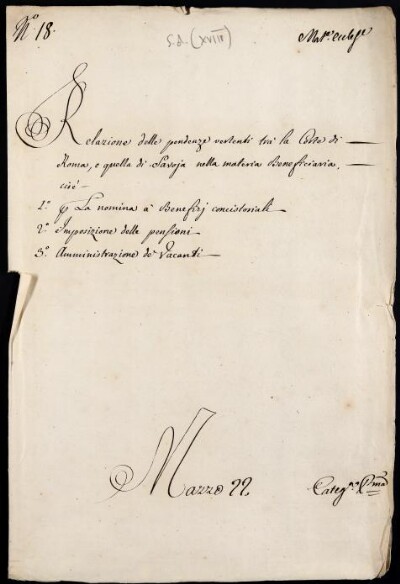 N.º 18.
s.d. (XVIII)
Mat.ᵉ eccles.ᵉ
Relazione delle pendenze vertenti trà la Corte di
Roma, e quella di Savoja nella materia Beneficiaria,
cioè
1.º La nomina à Benefizj concistoriali
2.º Imposizione delle pensioni
3.º Amministrazione de' Vacanti
Mazzo 22.
Categ.ª P.ma